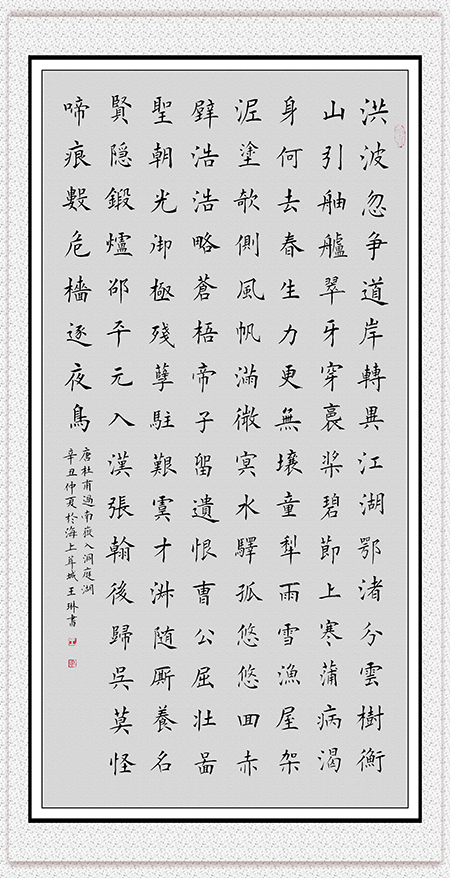 洪波忽爭道岸轉異江湖鄂渚分雲樹衡
山引舳艫翠牙穿裛槳碧節上寒蒲病渴
身何去春生力更無壤童犁雨雪漁屋架
泥塗欹側風帆滿微冥水驛孤悠悠回赤
壁浩浩略蒼梧帝子留遺恨曹公屈壯圖
聖朝光御極殘孽駐艱虞才淑随厮養名
賢隐鍛爐邵平元入漢張翰後歸吳莫怪
啼痕數危檣逐夜鳥
唐杜甫過南嶽入洞庭湖
辛丑仲夏於海上茸城王琳書